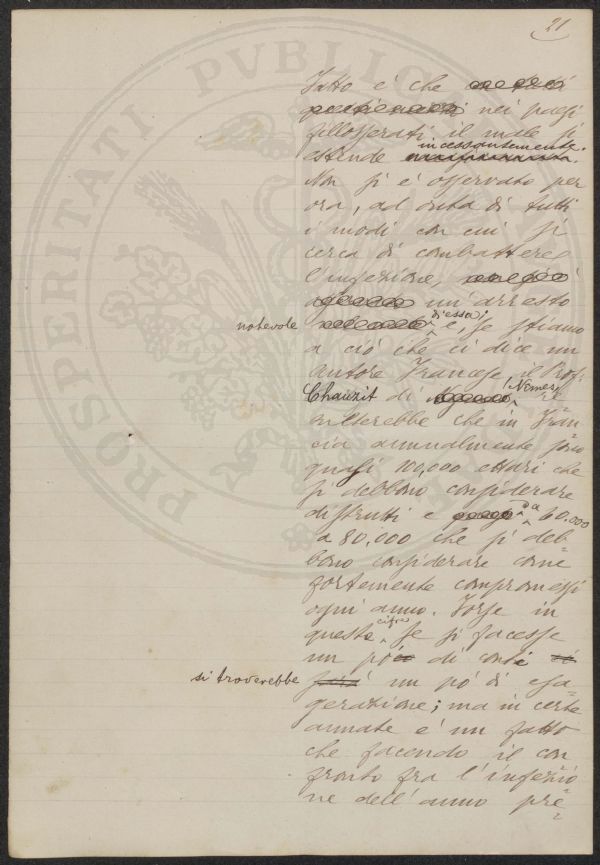 21
Fatto è che
nei paesi
fillosserati il male si
estende incessantemente.
Non si è osservato per
ora, ad onta di tutti
i modi con cui si
cerca di combattere
l'infezione,
un'arresto
notevole di essa; e, se stiamo
a ciò che ci dice un
autore Francese, il Prof.
Chauzit di Nemes, ri=
sulterebbe che in Fran
cia annualmente sono
quasi 100,000 ettari che
si debbono considerare
distrutti e da 60.000
a 80.000 che si deb=
bono considerare come
fortemente compromessi
ogni anno. Forse in
queste cifre se si facesse
un pó di conti
si troverebbe un pó di esa=
gerazione; ma in certe
annate è un fatto
che facendo il con
fronto fra l'infezio
ne dell'anno pre=
PROSPERITATI PVBLICAE